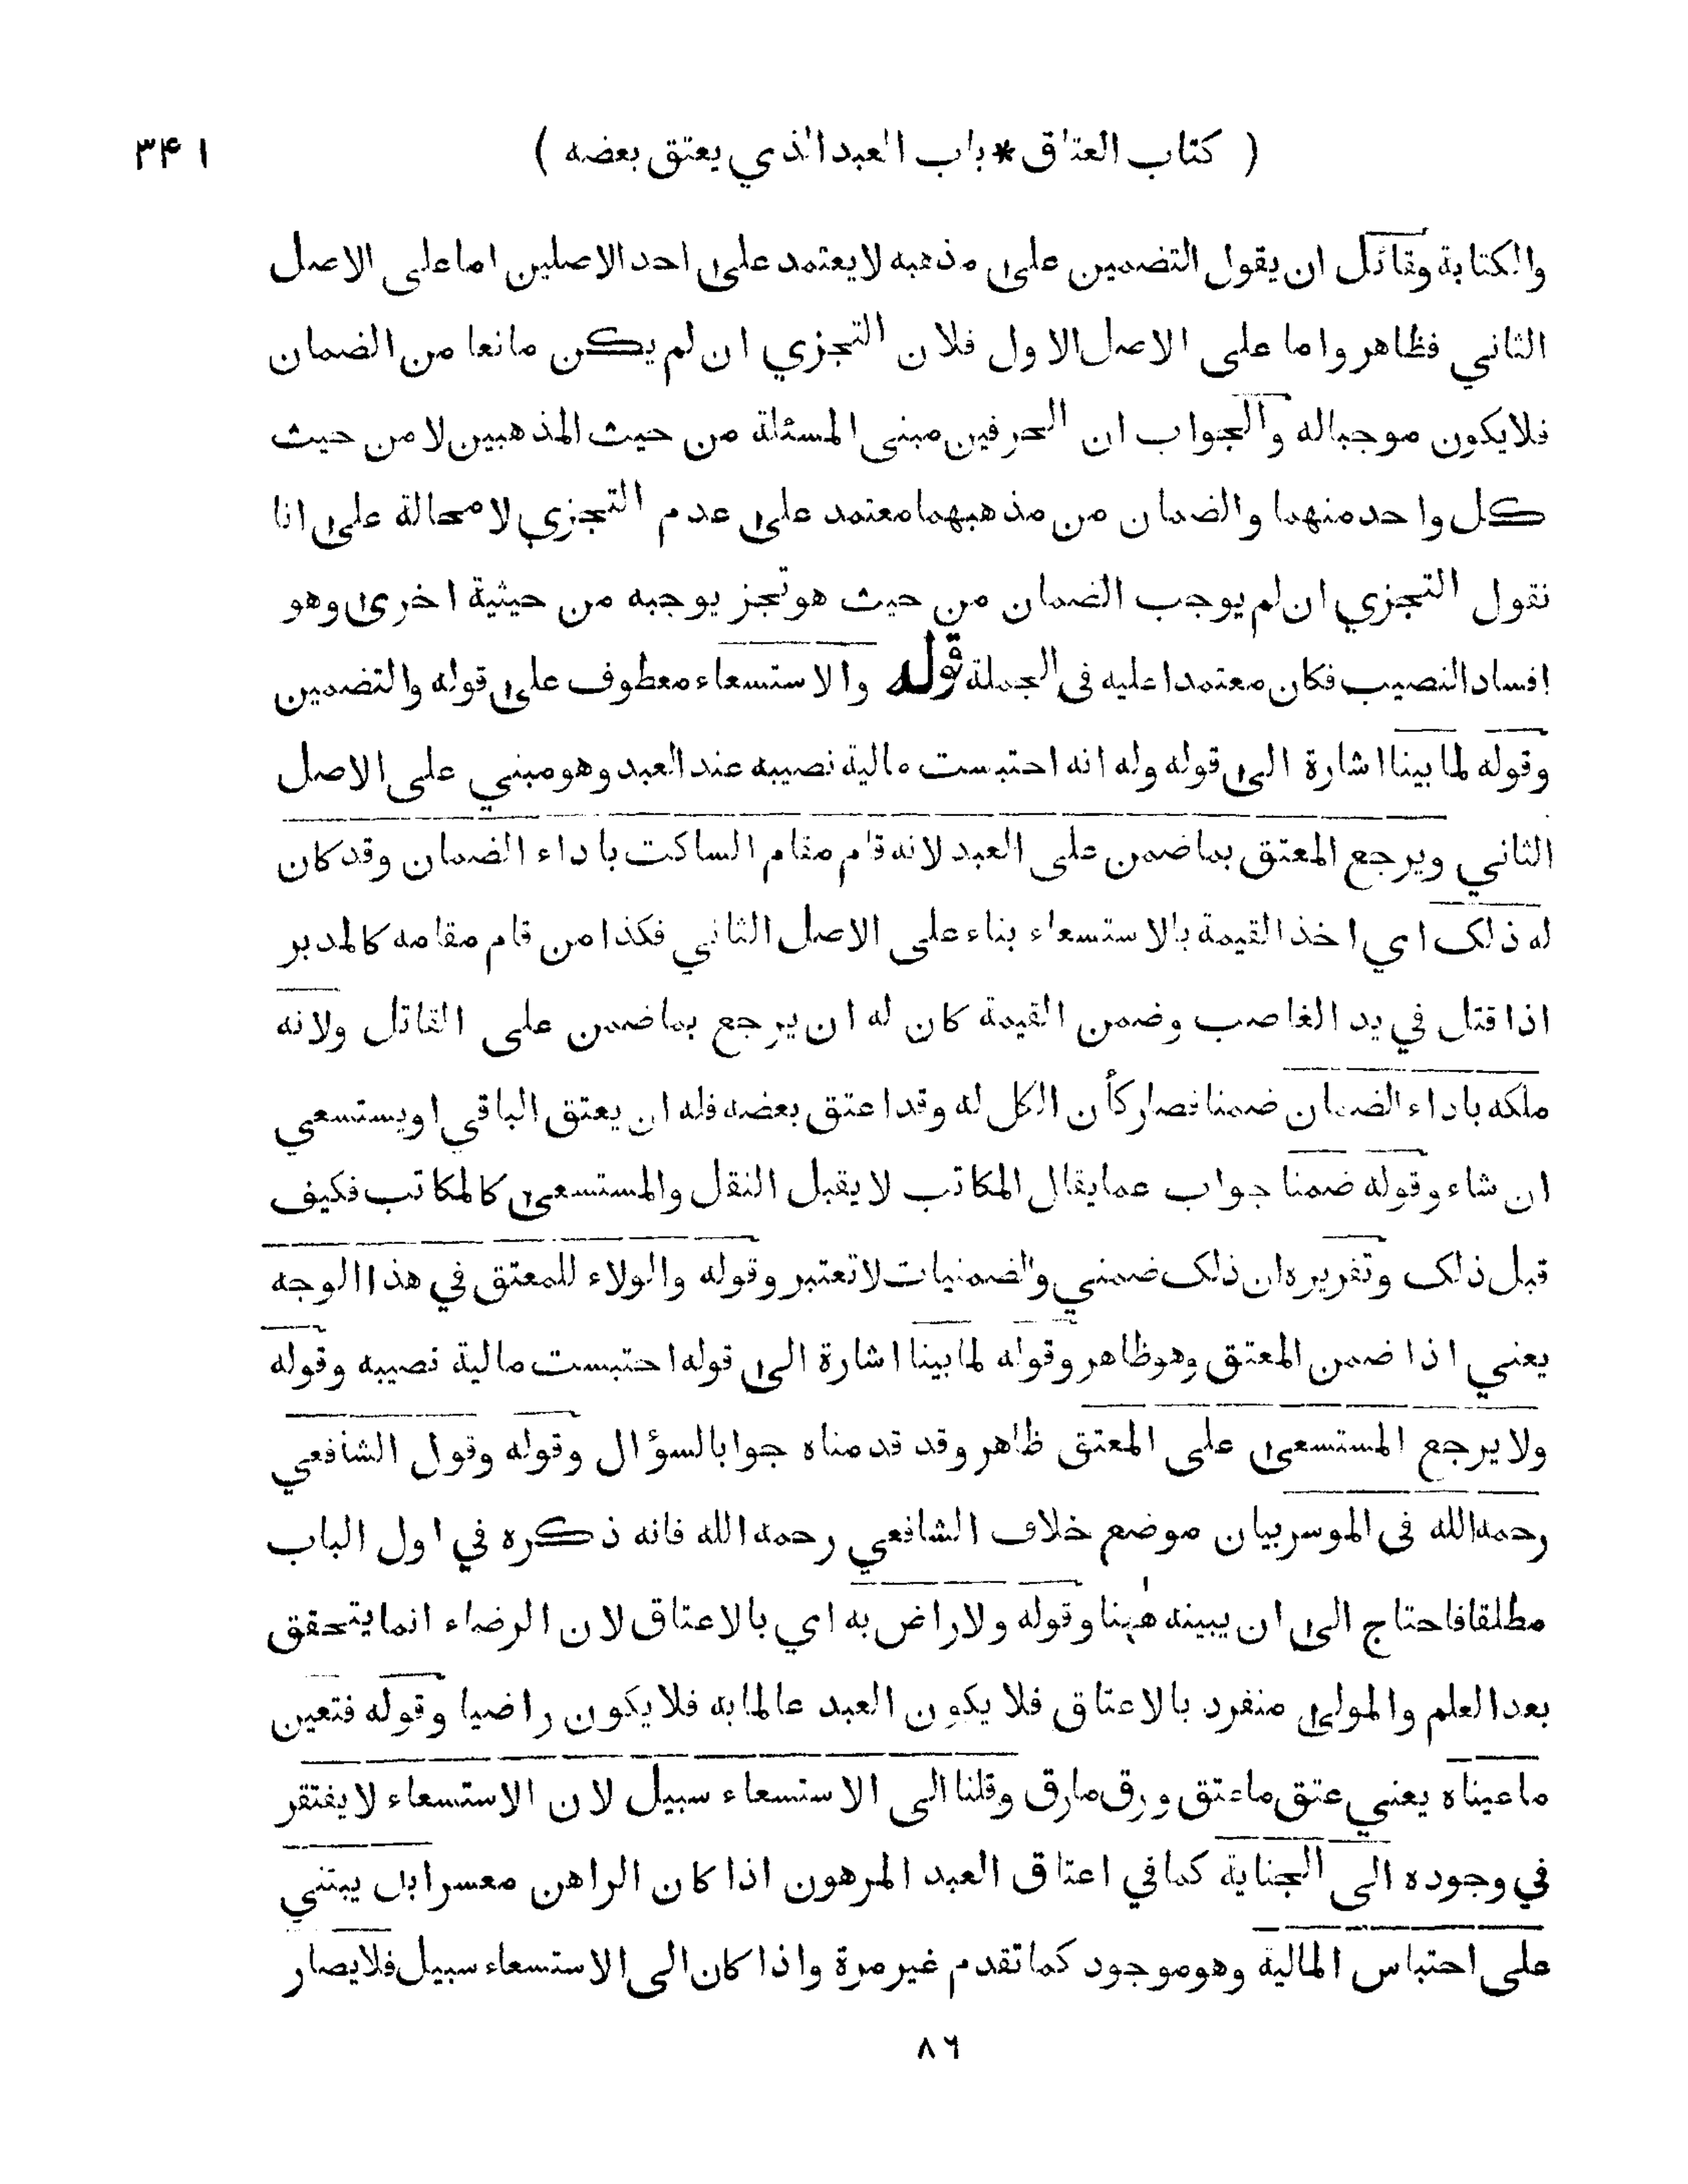 ( كتاب العتاق * باب العبد الذي يعتق بعضه )
۳۴۱
والكتابة وقائل ان يقول التضمين على مذهبه لا يعتمد على احد الاصلين اما على الاصل
الثاني فظاهر واما على الاصل الاول فلان التجزي ان لم يكن مانعا من الضمان
فلا يكون موجبا له والجواب ان الحرفين مبنى المسئلة من حيث المذهبين لا من حيث
كل واحد منهما والضمان من مذهبهما معتمد على عدم التجزي لا محالة على انا
نقول التجزي ان لم يوجب الضمان من حيث هو تجز يوجبه من حيثية اخرى وهو
افساد النصيب فكان معتمدا عليه في الجملة قوله والاستسعاء معطوف على قوله والتضمين
وقوله لما بينا اشارة الى قوله وله انه احتبست مالية نصيبه عند العبد وهو مبني على الاصل
الثاني ويرجع المعتق بما ضمن على العبد لانه قام مقام الساكت باداء الضمان وقد كان
له ذلك اي اخذ القيمة بالاستسعاء بناء على الاصل الثاني فكذا من قام مقامه كالمدبر
اذا قتل في يد الغاصب وضمن القيمة كان له ان يرجع بما ضمن على القاتل ولانه
ملكه باداء الضمان ضمنا فصار كأن الكل له وقد اعتق بعضه فله ان يعتق الباقي او يستسعي
ان شاء وقوله ضمنا جواب عما يقال المكاتب لا يقبل النقل والمستسعى كالمكاتب فكيف
قبل ذلك وتقريره ان ذلك ضمني والضمنيات لا تعتبر وقوله والولاء للمعتق في هذا الوجه
يعني اذا ضمن المعتق وهو ظاهر وقوله لما بينا اشارة الى قوله احتبست مالية نصيبه وقوله
ولا يرجع المستسعى على المعتق ظاهر وقد قدمناه جوابا لسؤال وقوله وقول الشافعي
رحمه الله في الموسر بيان موضع خلاف الشافعي رحمه الله فانه ذكره في اول الباب
مطلقا فاحتاج الى ان يبينه ههنا وقوله ولا راض به اي بالاعتاق لان الرضاء انما يتحقق
بعد العلم والمولى منفرد بالاعتاق فلا يكون العبد عالما به فلا يكون راضيا وقوله فتعين
ما عيناه يعني عتق ما عتق ورق ما رق وقلنا الى الاستسعاء سبيل لان الاستسعاء لا يفتقر
في وجوده الى الجناية كما في اعتاق العبد المرهون اذا كان الراهن معسرا بل يبتني
على احتباس المالية وهو موجود كما تقدم غير مرة واذا كان الى الاستسعاء سبيل فلا يصار
۸۶